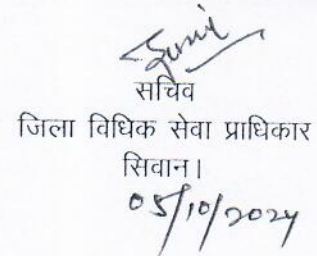 सचिव
जिला विधिक सेवा प्राधिकार
सिवान।
05/10/2024